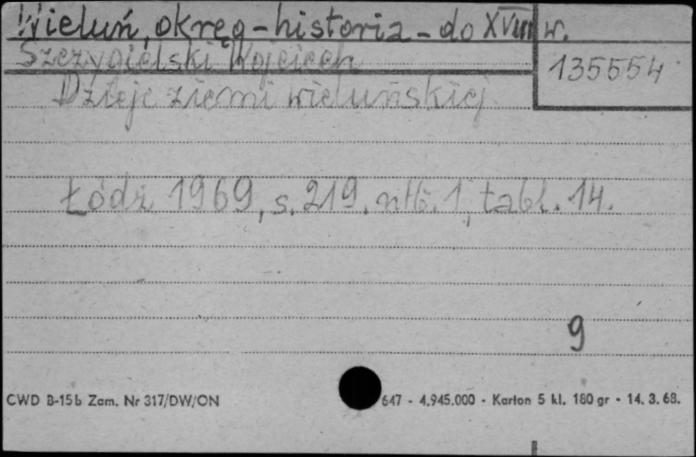 Wieluń, okręg - historia - do XVIII w.
Szczygielski Wojciech
135554
Dzieje ziemi wieluńskiej.
Łódź 1969, s. 219, nlb. 1, tabl. 14.
9
CWD B-15b Zam. Nr 317/DW/ON
647 - 4.945.000 - Karton 5 kl. 180 gr - 14. 3. 68.